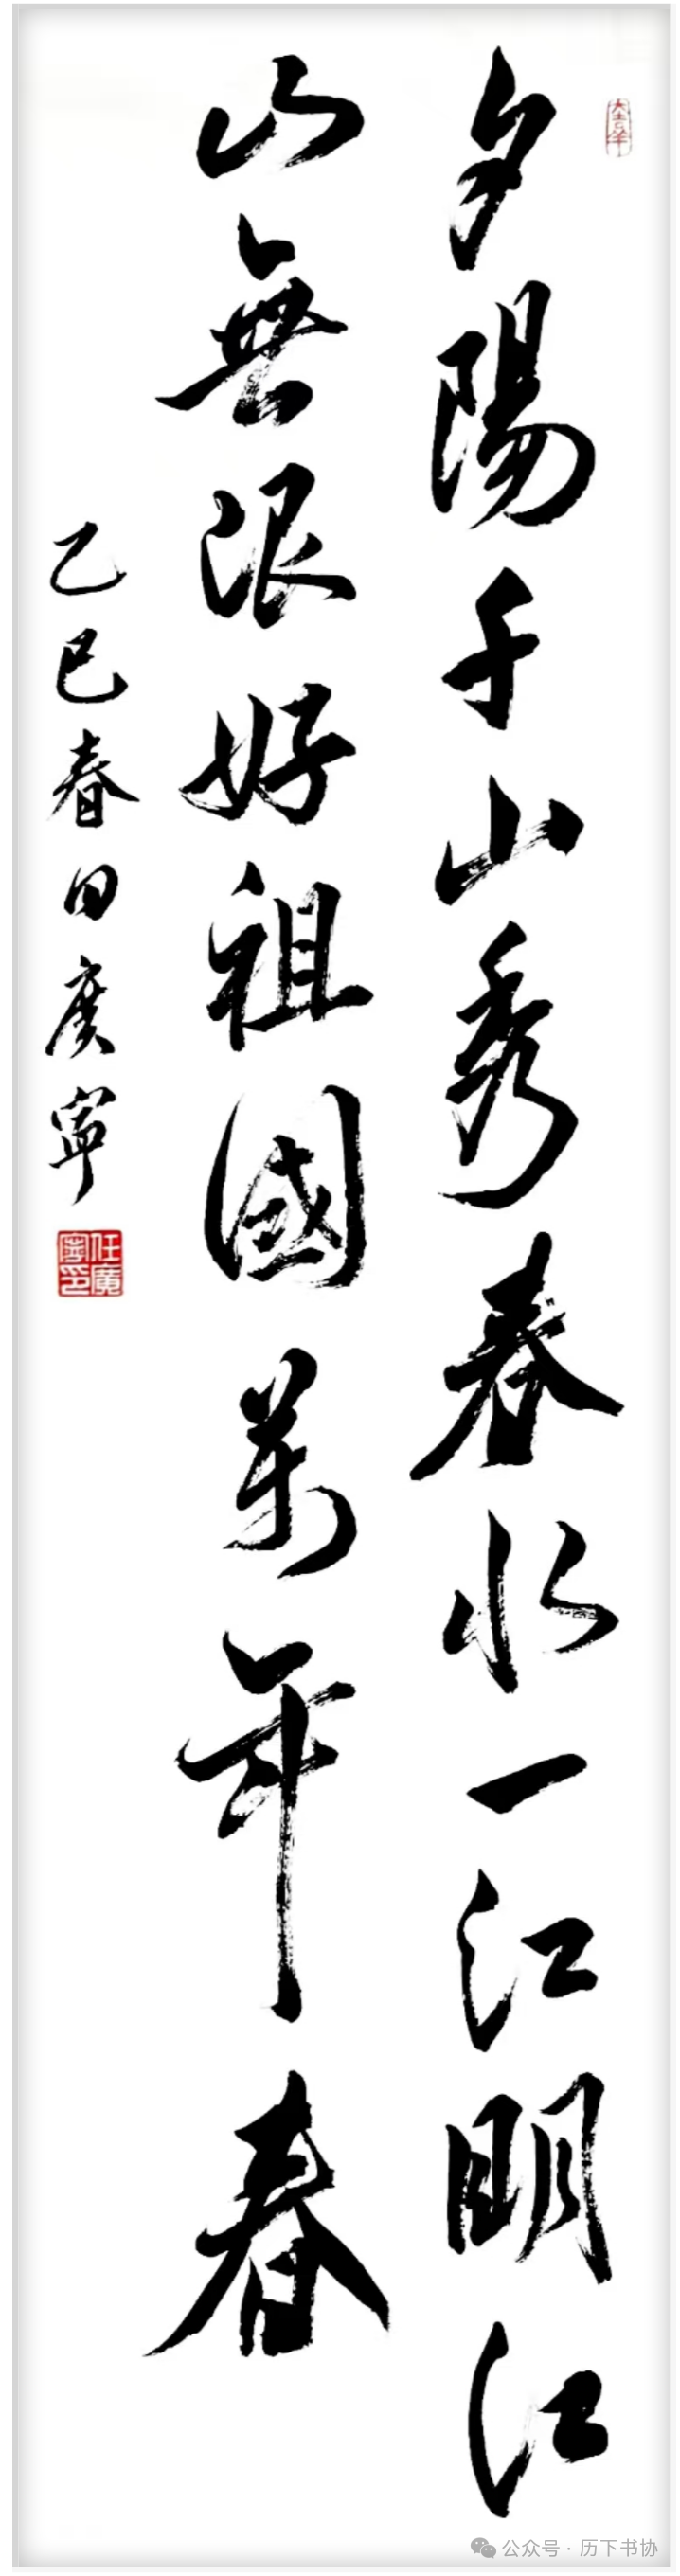 夕陽千山秀春水一江明江
山無限好祖國萬年春
乙巳春日廣寧
大吉羊
任廣寧印
公众号 · 历下书协